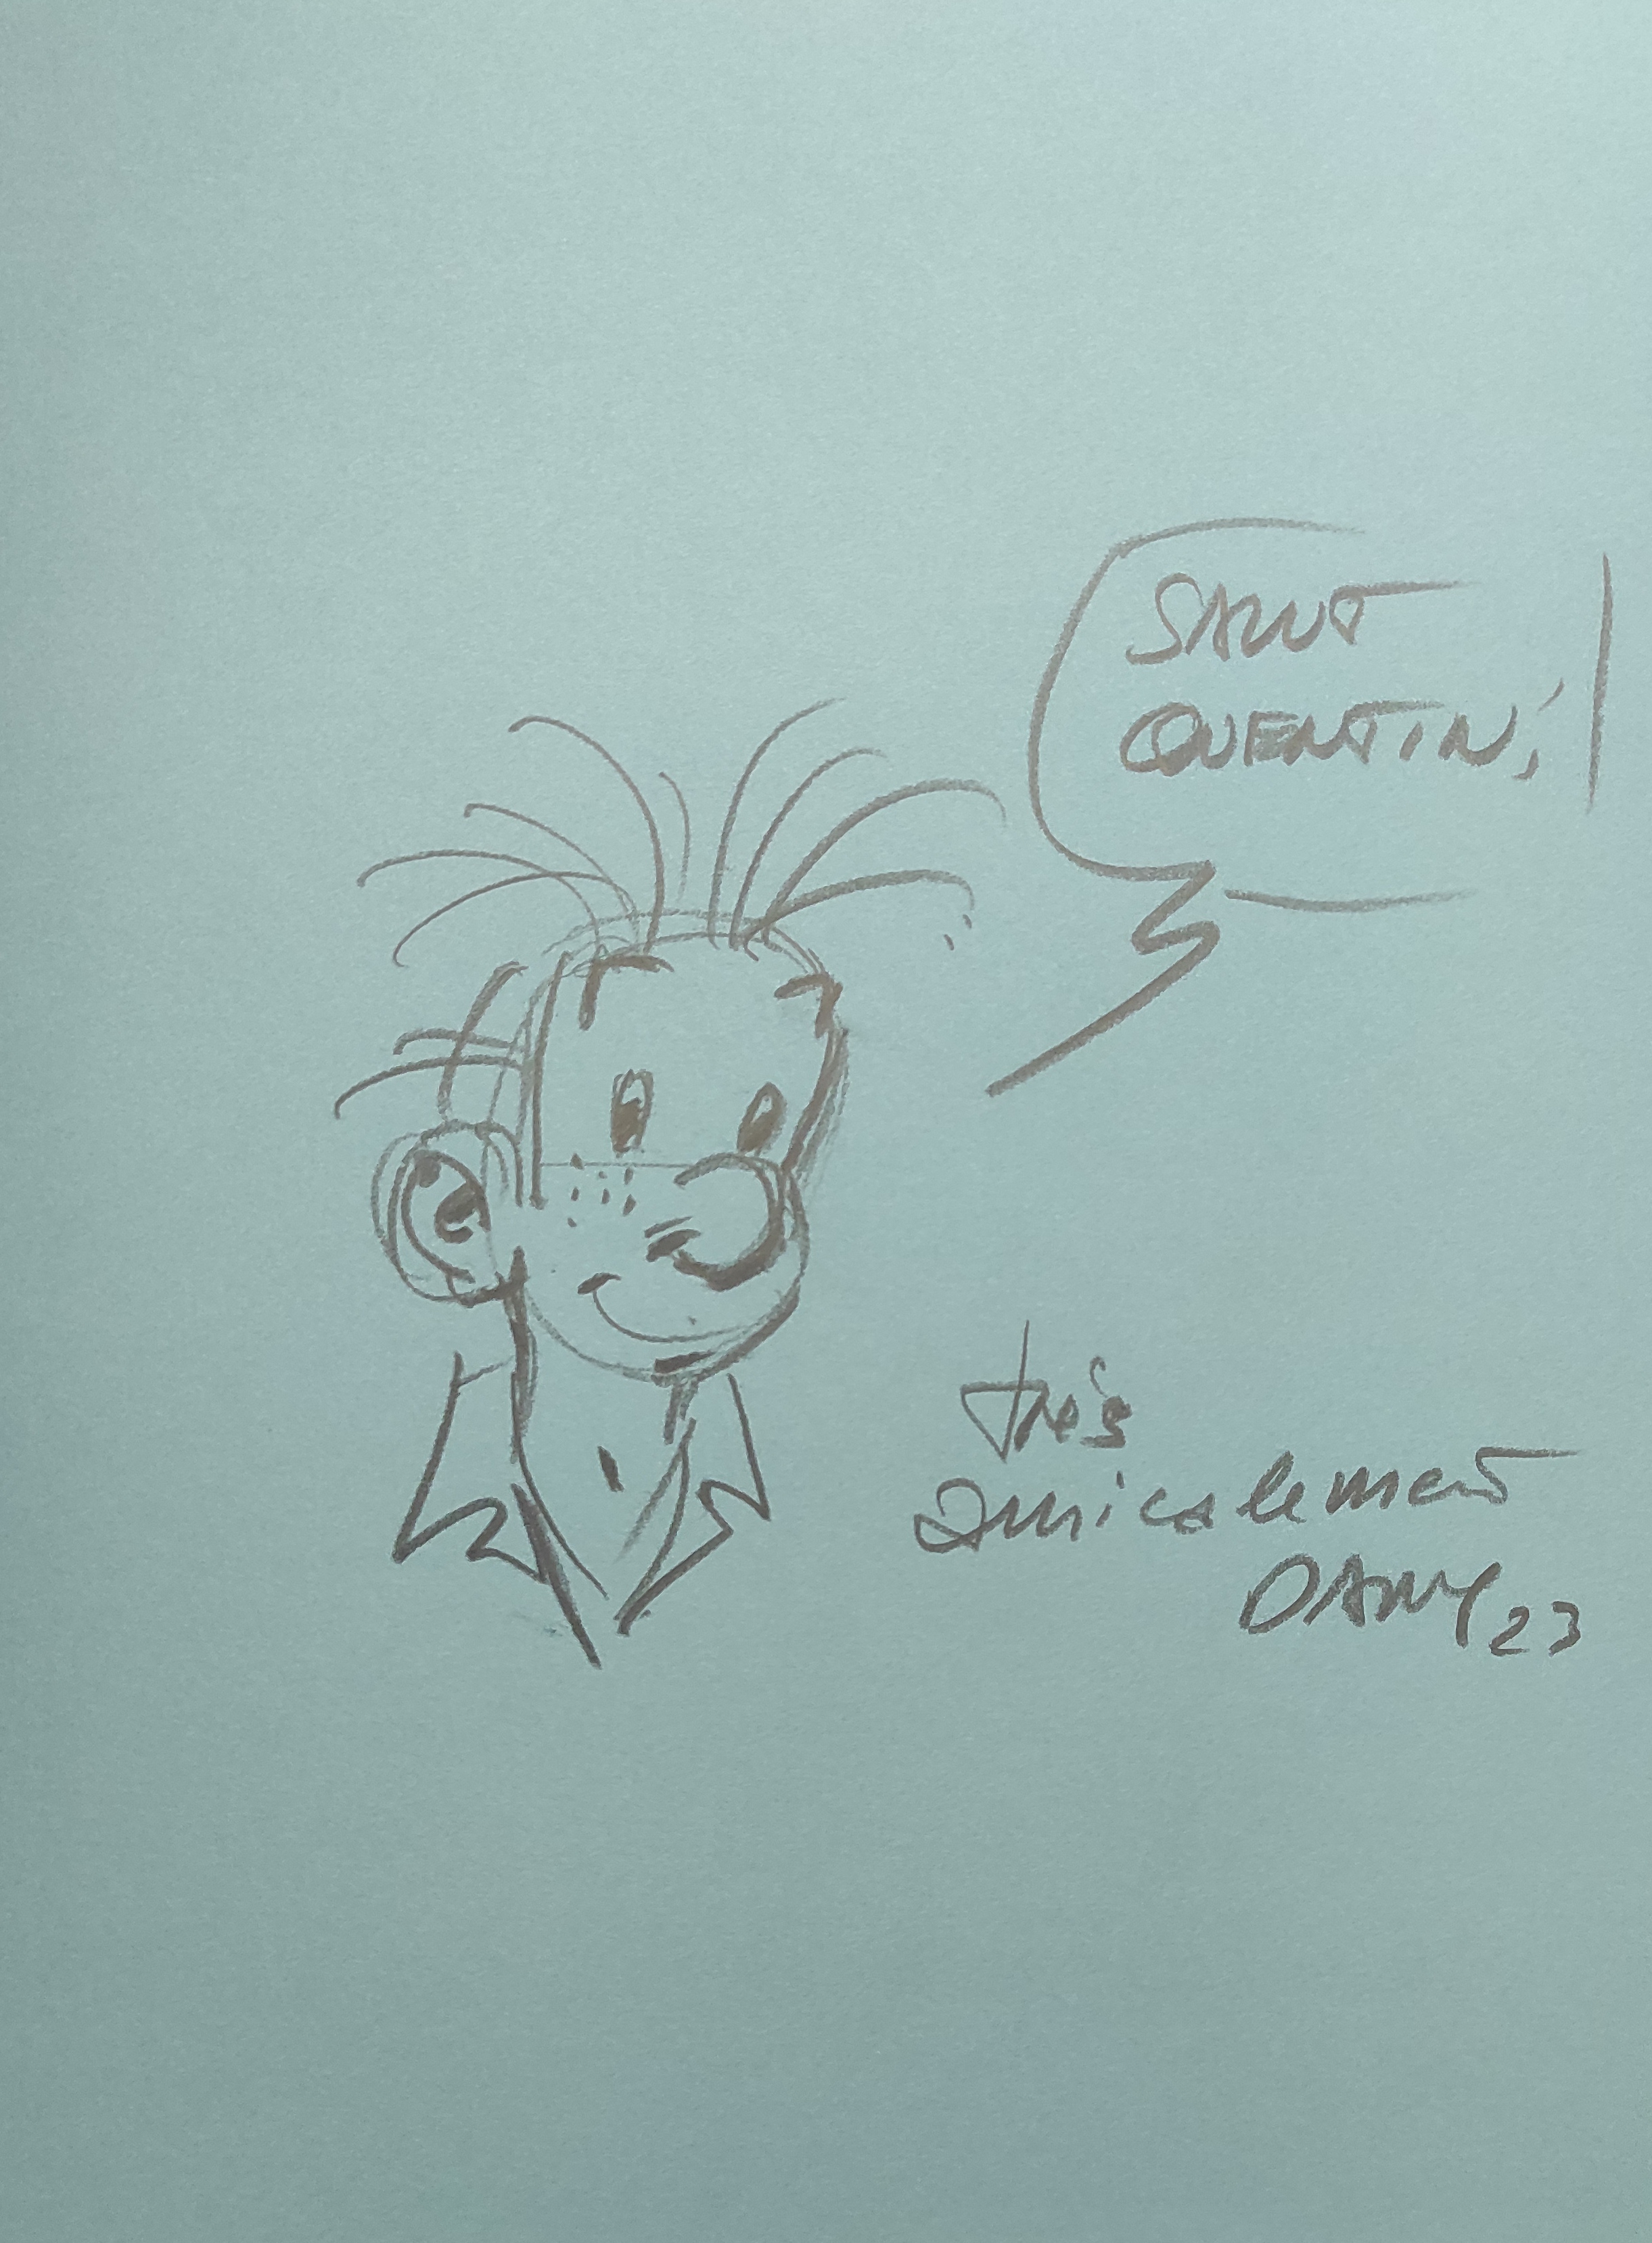 SALUT
QUENTIN,
très
amicalement
DANY 23